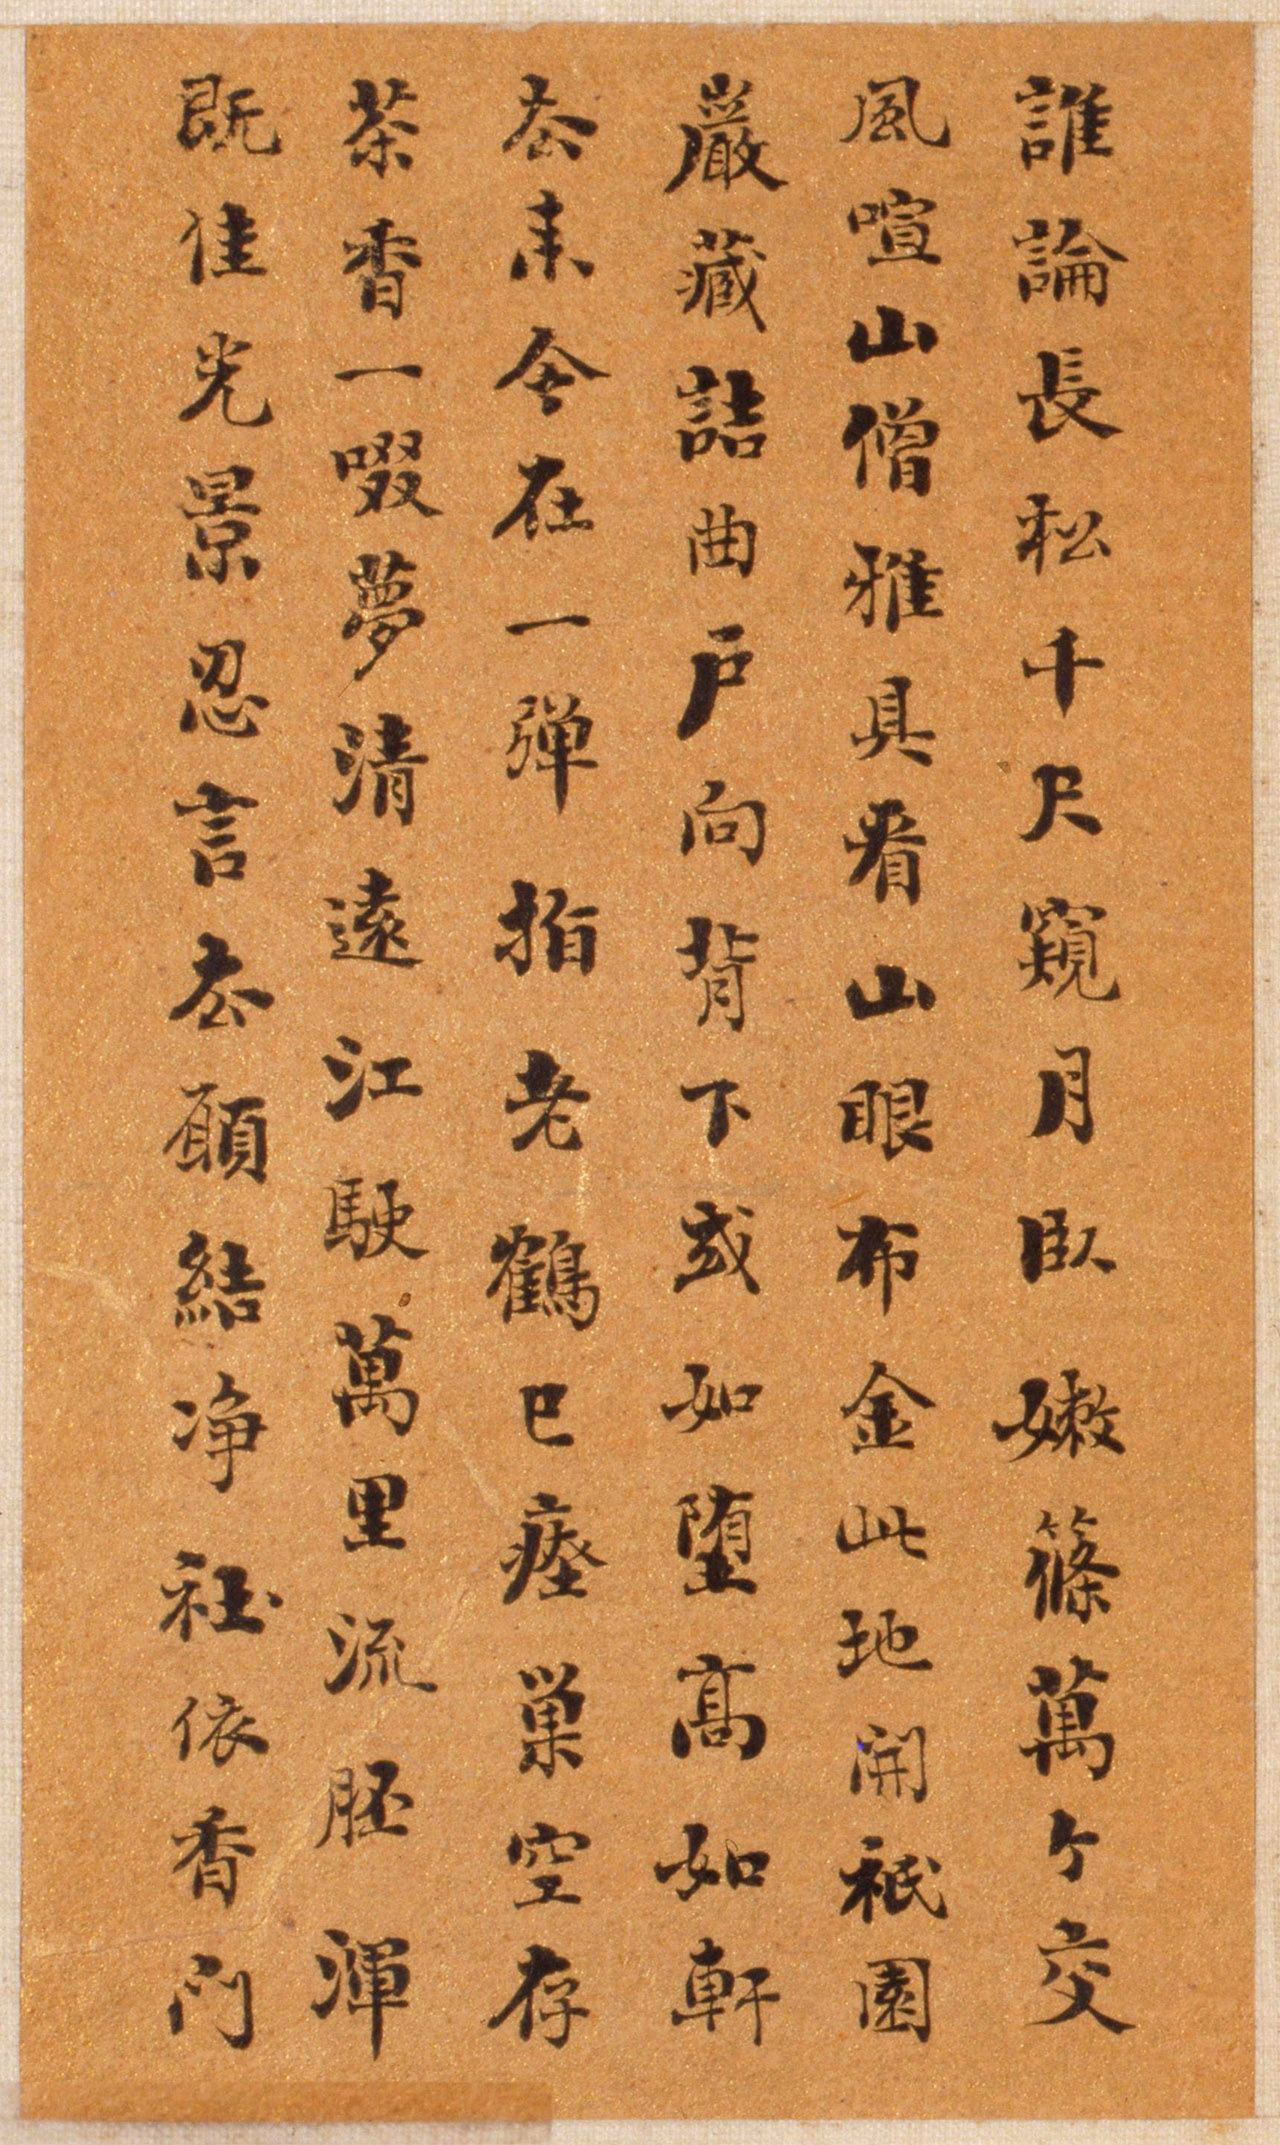 誰論長松千尺窺月臥嫩篠萬个交
風喧山僧雅具看山眼布金此地開祇園
嚴藏詰曲戶向背下或如堕高如軒
去来今在一彈指老鶴已瘞巢空存
茶香一啜夢清遠江駛萬里流胚渾
既佳光景忍言去願結净社依香門